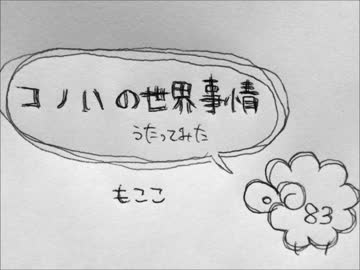 コノハの世界事情
うたってみた
もここ
83